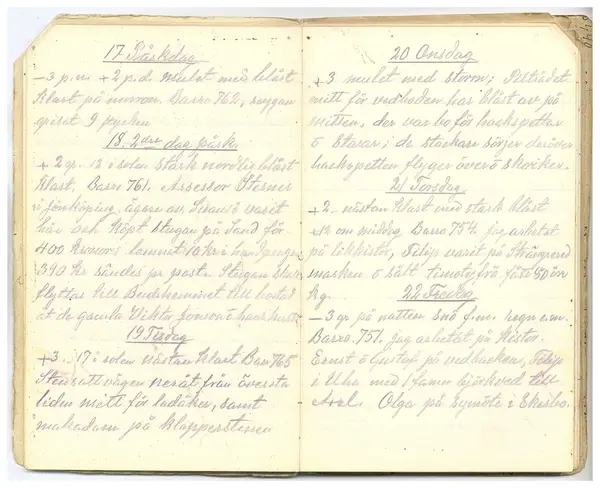 17 Påskdag
-3 p.m. +2 p.d. mulet med blåst
klart på morron. Barro 762, suggan
griset 9 stycken
18. 2dra dag påsk.
+2 gr. 13 i solen stark nordlig blåst
klart. Barro 761. Assessor Stesner
i Jönköping, ägare av varit
här och köpt stugan på Sand för
400 kronor, lemnat 10 kr i handpengar
390 kr sändes pr post. Stugan skall
flyttas till Budshemmet till bostad
åt de gamla Vikto Jonson o hans hustru
19 Tisdag
+3. 17 i solen nästan klart. Barr 765
Stensatt vägen neråt från översta
liden mitt för ladåker, samt
makadam på klapperstenen
20 Onsdag
+3 mulet med storm; Pilträdet
mitt för vedboden har blåst av på
mitten, der var bo för hackspettar
o Starar; de stackare sörjer deröver
hackspetten flyger över o skriker.
21 Torsdag
+2. nästan klart med stark blåst
+12 om middag Barro 754. jag arbetat
på likkistor, Filip varit på Strängered
masken o sålt timotejfrö fäst 50 öre
kg.
22 Fredag
-3 gr på natten snö f.m. regn e.m.
Barro. 751. jag arbetat på Kistor.
Ernst o Gustaf på vedbacken, Filip
i Ulva med 1 famn björkved till
Axel. Olga på symöte i Ekebo.